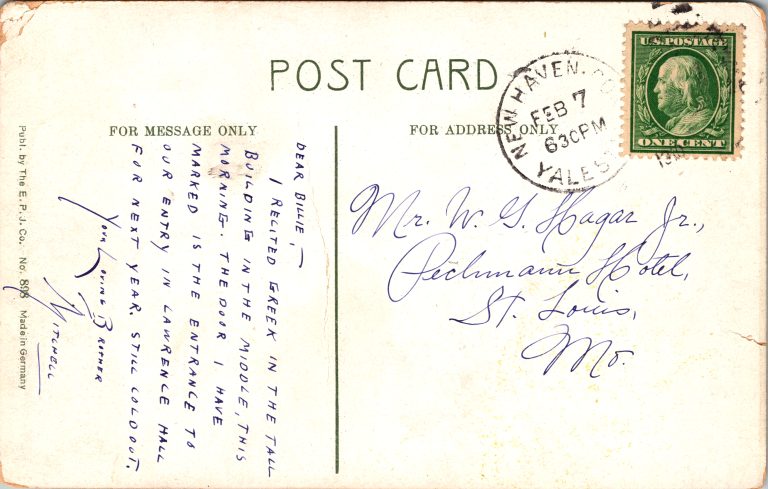 POST CARD
FOR MESSAGE ONLY
FOR ADDRESS ONLY
U.S. POSTAGE
ONE CENT
NEW HAVEN,
FEB 7
630PM
Mr. W. G. Hagar Jr.,
Pechmann Hotel,
St. Louis,
Mo.
DEAR BILLIE,—
I RELITED GREEK IN THE TALL
BUILDING IN THE MIDDLE, THIS
MORNING. THE DOOR I HAVE
MARKED IS THE ENTRANCE TO
OUR ENTRY IN LAWRENCE HALL
FOR NEXT YEAR. STILL COLD OUT.
YOUR LOVING BROTHER
MITCHELL
Publ. by The E. P. J. Co. No. 898 Made in Germany